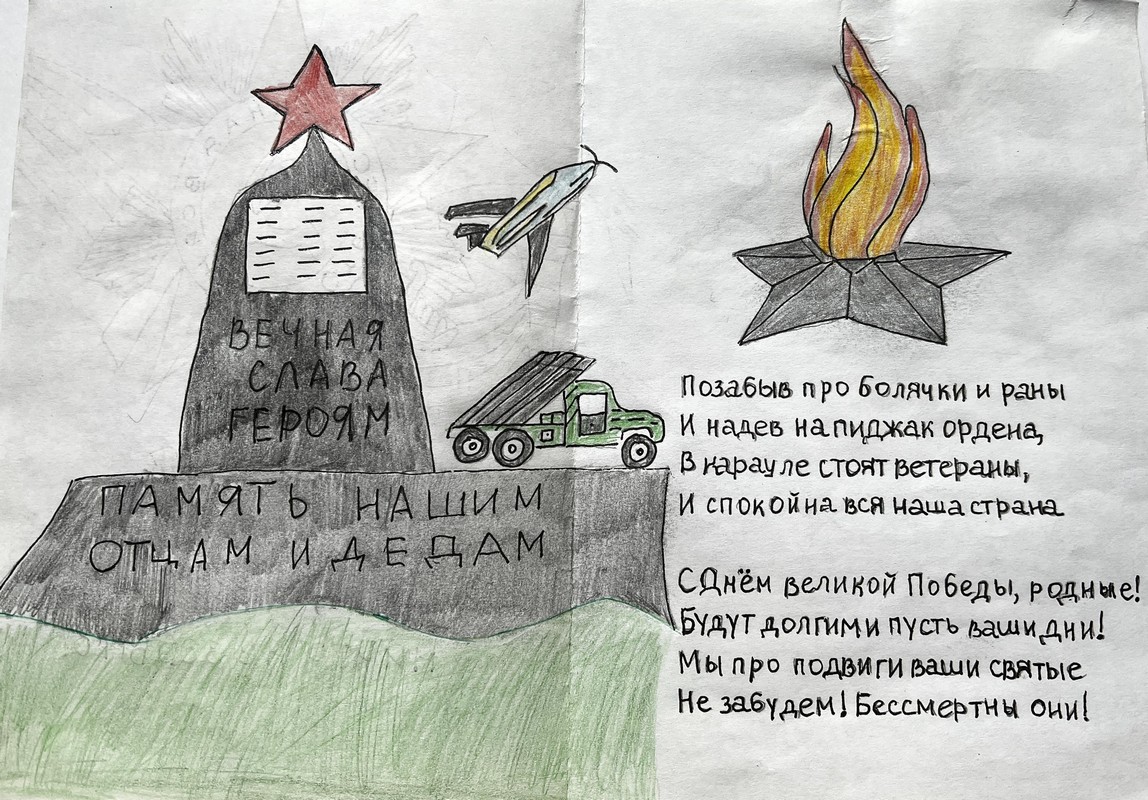 ВЕЧНАЯ
СЛАВА
ГЕРОЯМ
ПАМЯТЬ НАШИМ
ОТЦАМ И ДЕДАМ
Позабыв про болячки и раны
И надев на пиджак ордена,
В карауле стоят ветераны,
И спокойна вся наша страна
С Днём великой Победы, родные!
Будут долгими пусть ваши дни!
Мы про подвиги ваши святые
Не забудем! Бессмертны они!